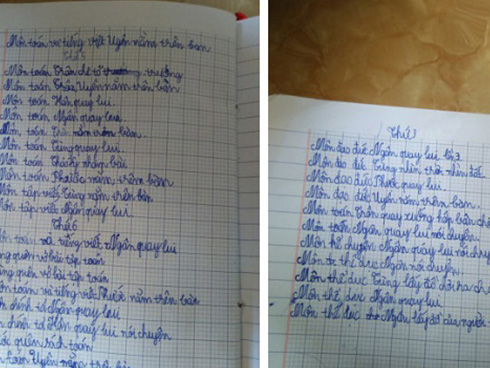 Môn toán và tiếng việt Uyên nằm trên bàn
Thứ 5
Môn toán Trân che tờ trường
Môn toán Trâu, Uyên nằm trên bàn
Môn toán Hân quay lui
Môn toán Ngân quay lui
Môn toán nằm trên bàn.
Môn toán Tùng quay lui
Môn toán bài
Môn toán Phước nằm trên bàn
Môn tập viết Tùng nằm trên bàn
Môn tập viết Ngân quay lui.
Thứ 6
toán và tiếng việt Ngân quay lui
quên vở bài tập toán
quên vở bài tập toán
toán và tiếng việt Phước nằm trên bàn
chính tả Ngân quay lui
chính tả Hân quay lui nói chuyện
quên sách toán
toán Uyên nằm trên bàn
Thứ
Môn đạo đức Ngân quay lui
Môn đạo đức Tùng nhìn trời nhìn đất
Môn đạo đức Phước quay lui.
Môn đạo đức Uyên nằm trên bàn.
Môn toán Trân quay xuống hộp bàn
Môn toán Ngân quay lui nói chuyện.
Môn kể chuyện Ngân quay lui nói chuyện
Môn thể dục Ngân nói chuyện.
Môn thể dục Tùng lấy đồ chơi ra
Môn thể dục Ngân quay lui.
Môn thể dục Ngân lấy đồ của người